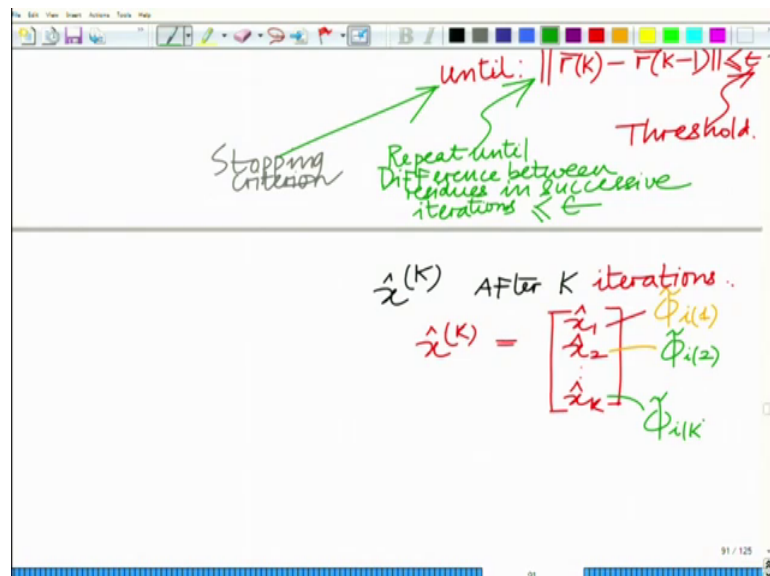 File Edit View Insert Actions Tools Help
B I
until: || r̅(K) - r̅(K-1) || ≤ ϵ
Threshold.
Stopping
Criterion
Repeat until
Difference between
residues in successive
iterations ≤ ϵ
x̂^(K) After K iterations..
x̂^(K) = [ x̂₁ Φ̃i(1)
x̂₂ Φ̃i(2)
⋮
x̂K ] Φ̃i(K
91 / 125
91